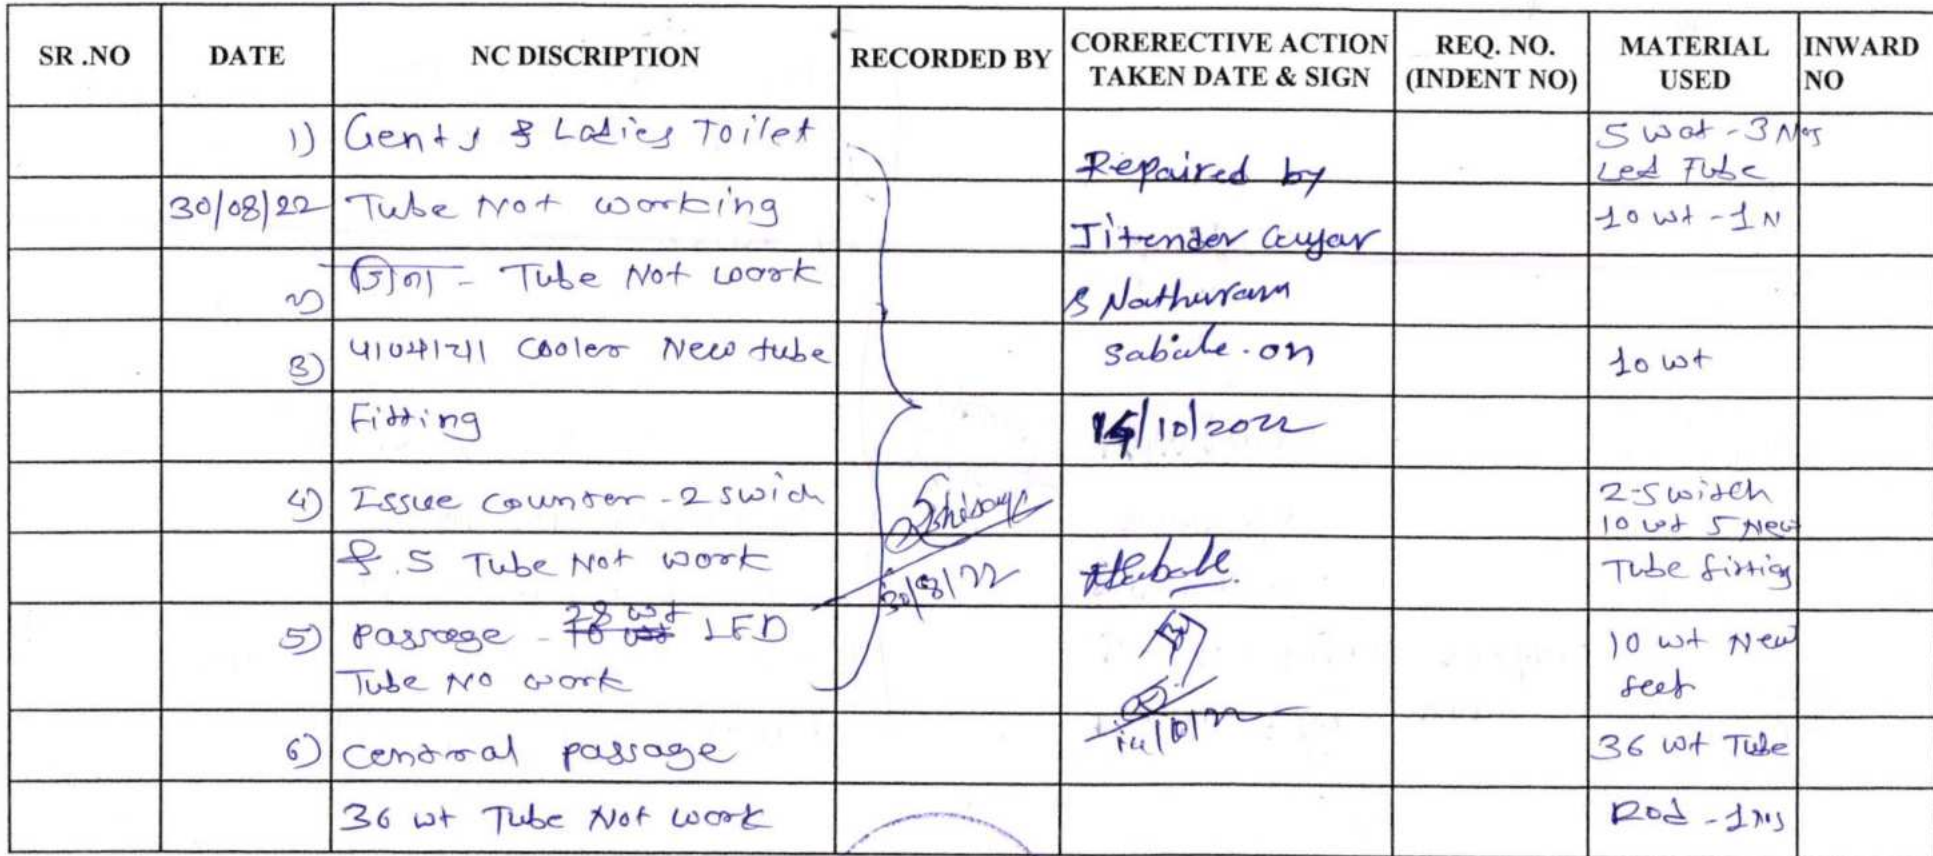 SR .NO DATE NC DISCRIPTION RECORDED BY CORERECTIVE ACTION TAKEN DATE & SIGN REQ. NO. (INDENT NO) MATERIAL USED INWARD NO
1) Gents & Ladies Toilet 5 wat - 3 Nos
Repaired by Led Tube
30/08/22 Tube Not working 10 wt - 1 N
Jitender
2) जिना - Tube Not work
& Nathuram
3) पाण्याचा Cooler New tube Sabale. on 10 wt
Fitting 14/10/2022
4) Issue counter - 2 swich 2-switch
10 wt 5 New
&. 5 Tube Not work 30/8/22 Tube fitting
5) passage - 28 wt LED 10 wt New
Tube No work seet
14/10/22
6) centoral passage 36 wt Tube
36 wt Tube Not work Rod - 1 Nos